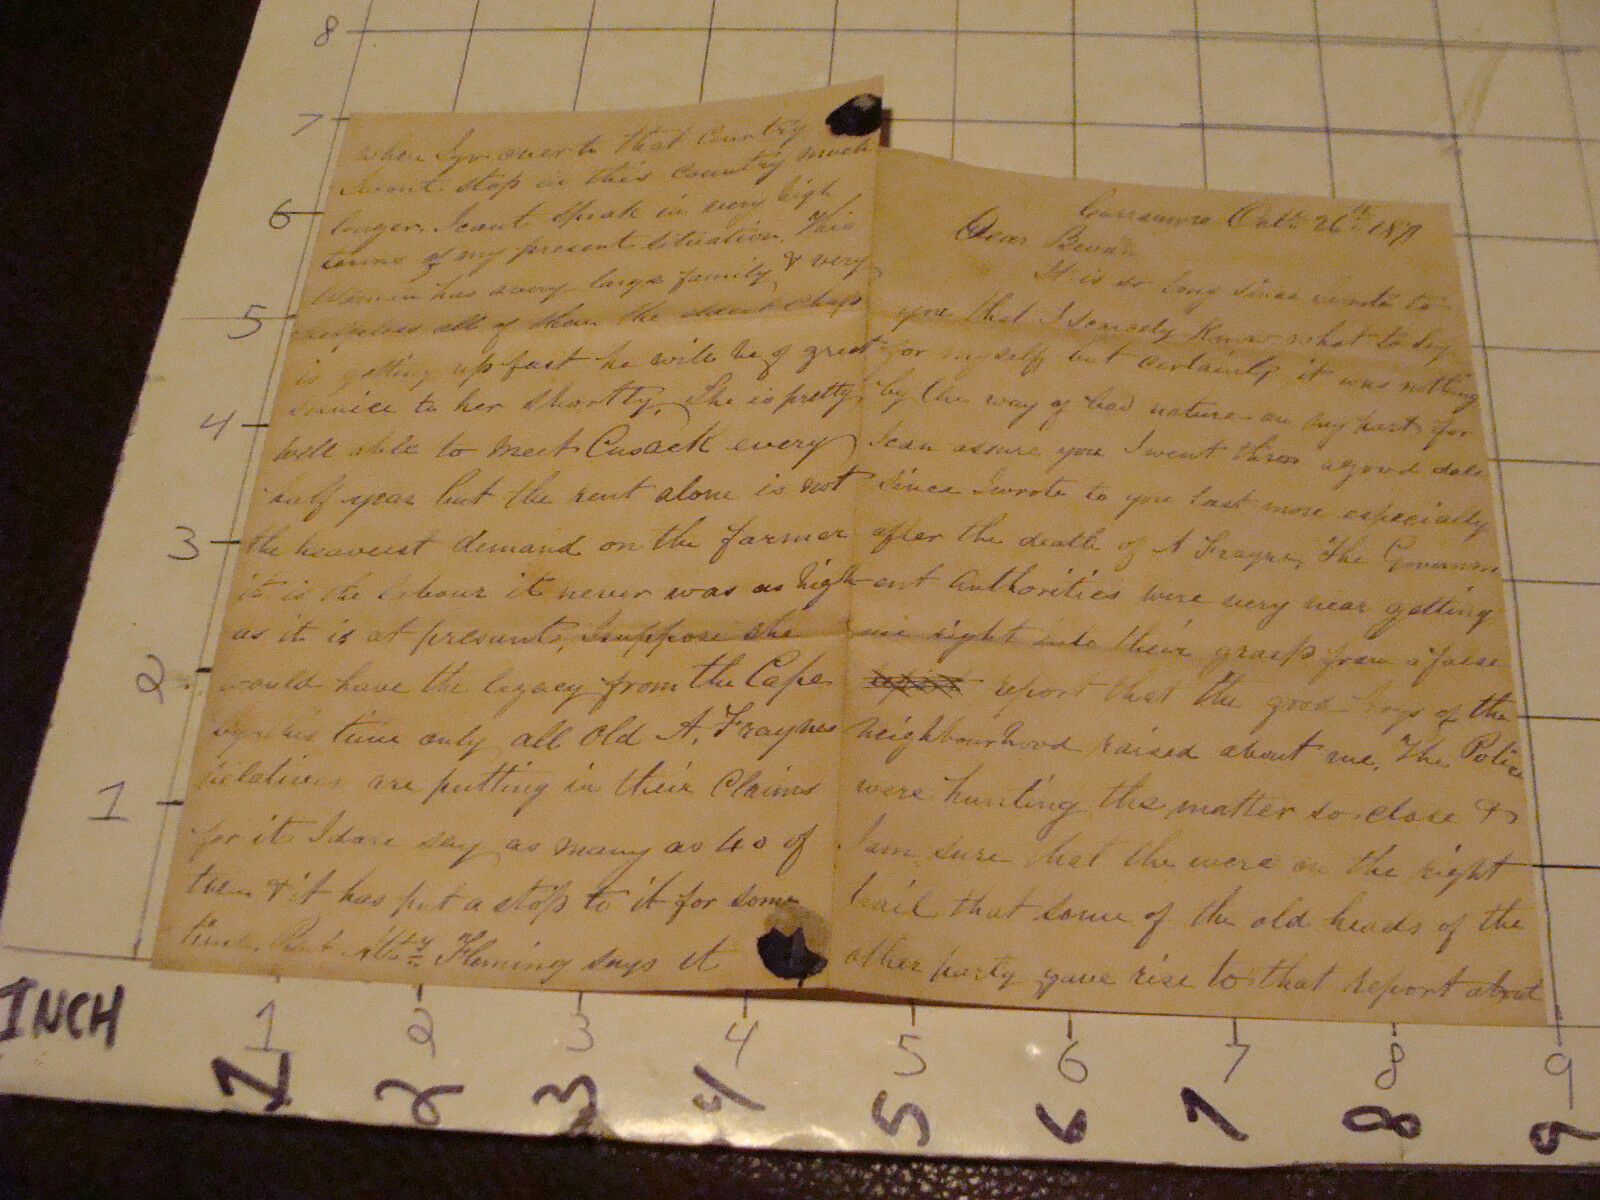 Oct 26th 187
Dear Bevan
It is so long since wrote to
you that I scarcely know what to say
for myself but certainly it was nothing
by the way of bad nature on my part for
I can assure you I went thro a good deal
since I wrote to you last more especially
after the death of A Frayne, The Governm
ent Authorities were very near getting
me right into their grasp from a false
report report that the good boys of the
neighbourhood raised about me. The Police
were hunting the matter so close &
I am sure that the were on the right
trail that some of the old heads of the
other party gave rise to that report about
when I go over to that Country
I wont stop in this country much
longer, I cant speak in very high
terms of my present situation. This
Woman has a very large family, & very
all of them the eldest chap
is getting up fast he will be of great
service to her shortly, She is pretty
well able to meet Cusack every
half year but the rent alone is not
the heaviest demand on the farmer
it is the labour it never was as high
as it is at present, I suppose she
would have the legacy from the Cape
by this time only all Old A. Fraynes
relatives are putting in their Claims
for it I dare say as many as 40 of
them & it has put a stop to it for some
time. Fleming says it
INCH
8
7
6
5
4
3
2
1
1 2 3 4 5 6 7 8 9
1 2 3 4 5 6 7 8 9